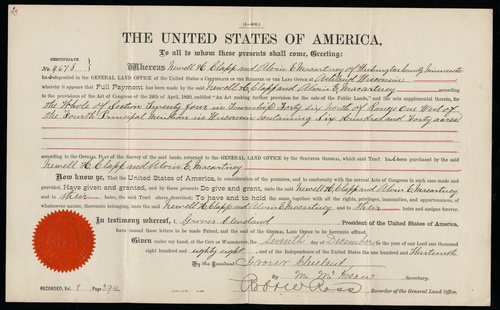 (4—406.)
THE UNITED STATES OF AMERICA,
To all to whom these presents shall come, Greeting:
CERTIFICATE
No. 9673
Whereas Newell H. Clapp and Alvin E. Macartney of Washington County Minnesota
ha deposited in the GENERAL LAND OFFICE of the United States a CERTIFICATE OF THE REGISTER OF THE LAND OFFICE at Ashland Wisconsin
whereby it appears that Full Payment has been made by the said Newell H. Clapp and Alvin E. Macartney according
to the provisions of the Act of Congress of the 24th of April, 1820, entitled "An Act making further provision for the sale of the Public Lands," and the acts supplemental thereto, for
the Whole of Section Twenty four in Township Forty six North of Range One West of
the Fourth Principal Meridian in Wisconsin containing Six Hundred and Forty acres
according to the OFFICIAL PLAT of the Survey of the said lands, returned to the GENERAL LAND OFFICE by the SURVEYOR GENERAL, which said Tract has been purchased by the said
Newell H. Clapp and Alvin E. Macartney
Now know ye, That the United States of America, in consideration of the premises, and in conformity with the several Acts of Congress in such case made
and provided, Have given and granted, and by these presents Do give and grant, unto the said Newell H. Clapp and Alvin E. Macartney
and to their heirs, the said Tract above described; To have and to hold the same, together with all the rights, privileges, immunities, and appurtenances, of
whatsoever nature, thereunto belonging, unto the said Newell H. Clapp and Alvin E. Macartney and to their heirs and assigns forever.
In testimony whereof, I, Grover Cleveland President of the United States of America,
have caused these letters to be made Patent, and the Seal of the General Land Office to be hereunto affixed.
Given under my hand, at the CITY OF WASHINGTON, the seventh day of December in the year of our Lord one thousand
eight hundred and eighty eight, and of the Independence of the United States the one hundred and thirteenth
By the President: Grover Cleveland
By M. McKean Secretary.
Robt. W. Ross Recorder of the General Land Office.
RECORDED, Vol. 8 Page 394